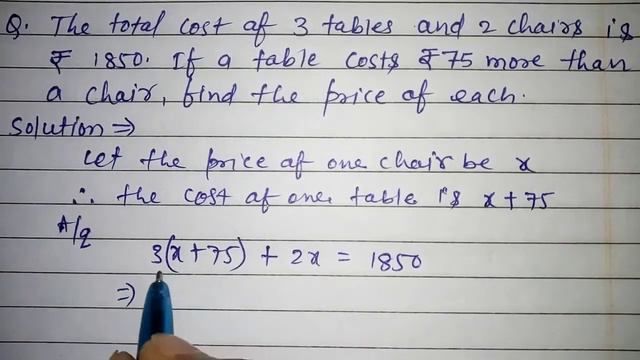 Q. The total cost of 3 tables and 2 chairs is
₹ 1850. If a table costs ₹75 more than
a chair, find the price of each.
Solution ⇒
Let the price of one chair be x
∴ the cost of one table is x + 75
A/q
3(x + 75) + 2x = 1850
⇒